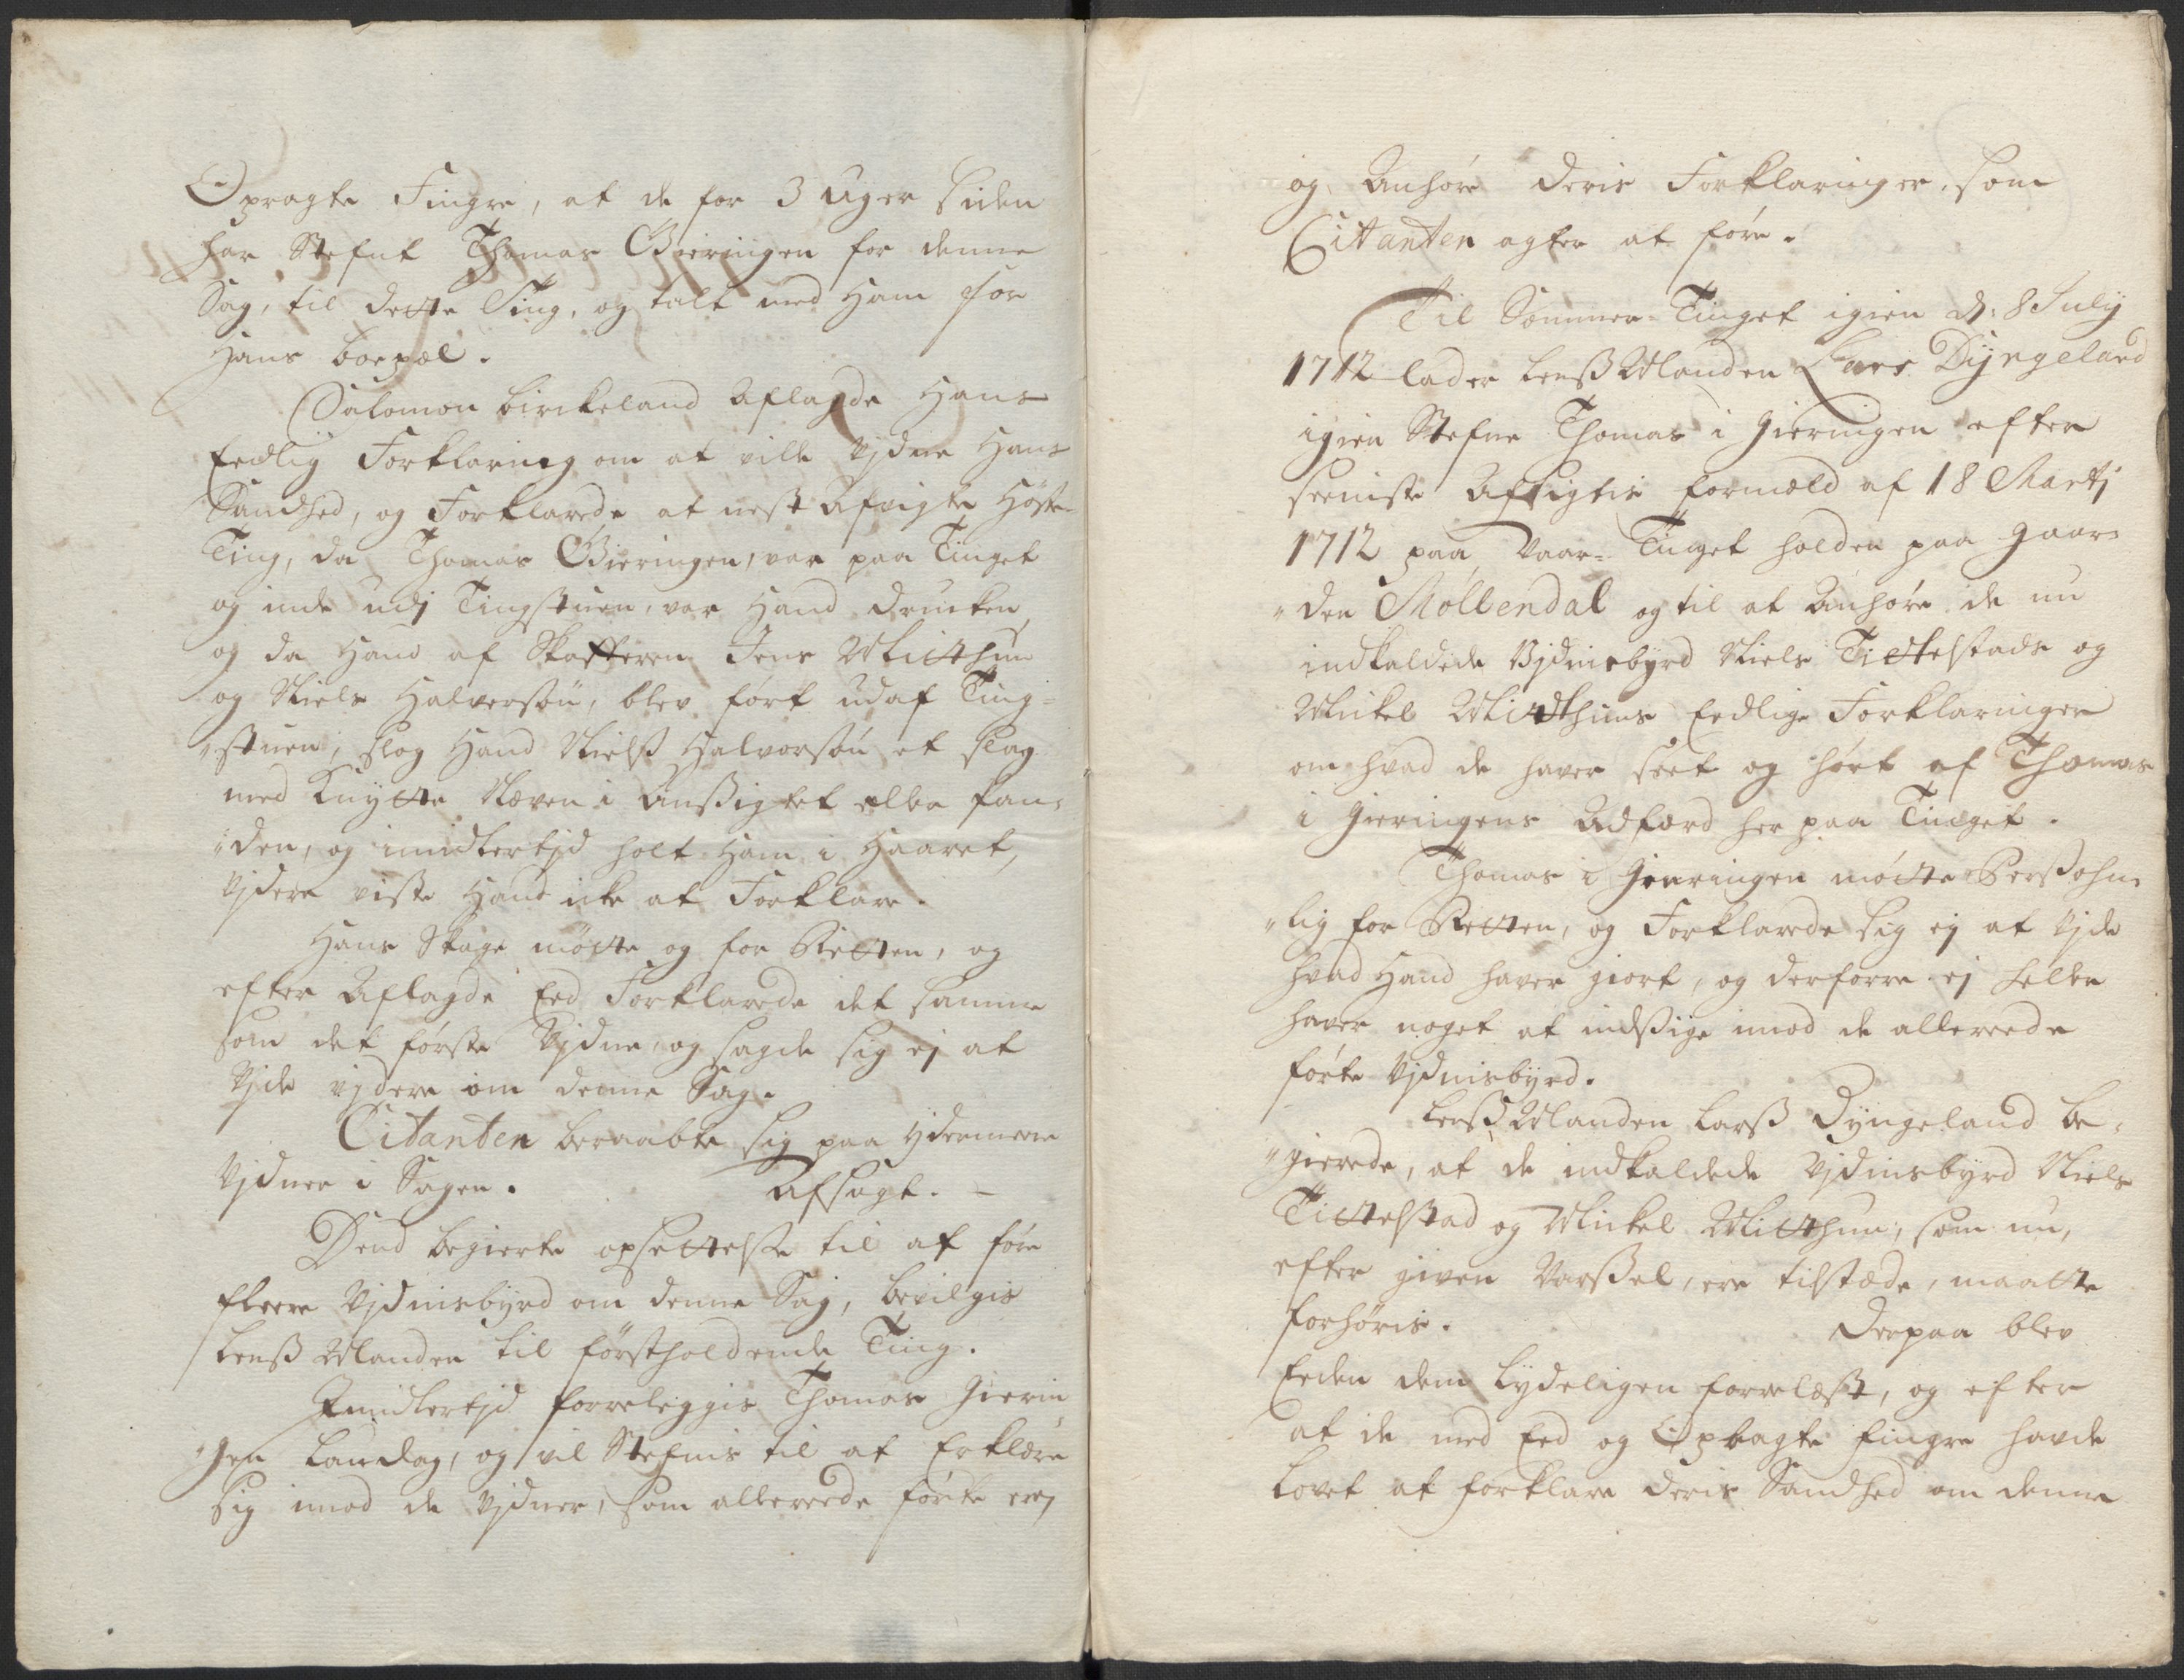 Opragte Fingre, at de for 3 uger siden
har Stefnt Thomas Gieringen for denne
Sag, til dette Ting, og talt med Ham for
Hans boepæl.
Salomon Birckeland aflagde Hans
Eedlig Forklaring om at ville Vjdne Hans
Sandhed, og Forklarede at nest afvigte Høste-
Ting, da Thomas Gieringen, var paa Tinget
og inde udj Tingstuen, var Hand drucken,
og da Hand af Skafferen Jens Mitthun
og Niels Halversøn, blev ført ud af Ting-
"stuen, slog Hand Nielß Halvorsøn et slag
med Knytte Næven i ansigtet eller pan-
"den, og imidlertjd holt Ham i Haaret,
Vjdere viste Hand icke at Forklare.
Hans Skage møtte og for Retten, og
efter aflagde Eed Forklarede det samme
som det første Vjdne, og sagde sig ej at
Vjde vjdere om denne Sag.
Citanten beraabte sig paa ydermeere
Vjdner i Sagen. Afsagt. -
Dend begierte opsettelse til at føre
fleere Vjdnisbyrd om denne Sag, bevilgis
Lensß Manden til førstholdende Ting.
Imidlertjd forreleggis Thomas Gierin
"gen Laudag, og vil Stefnis til at Erklære
sig imod de Vjdner, som allereede førte ere,
og Anhøre deris Forklaringer, som
Citanten agter at føre.
Til Sommer-Tinget igien d: 8 Julij
1712 lader Lenß Manden Lars Dyngeland
igien Stefne Thomas i Gieringen efter
seeniste Afsigtis formæld af 18 Martj
1712 paa Vaar-Tinget holden paa Gaar-
"den Møllendal og til at Anhøre de nu
indkaldede Vjdnisbyrd Niels Tittelstads og
Mickel Midthuns Eedlige Forklaringer
om hvad de haver seet og hørt af Thomas
i Gieringens Adfærd her paa Tinget.
Thomas i Gieringen møtte Perßohn-
"lig for Retten, og Forklarede sig ej at Vjde
hvad Hand haver giort, og derforre ej heller
haver noget at indsige imod de allereede
førte Vjdnisbyrd.
Lenß Manden Larß Dyngeland be-
"gierede, at de indkaldede Vjdnisbyrd Niels
Tittelstad og Mickel Mitthun, som nu,
efter given Varßel, ere tilstæde, maatte
forhøris. Derpaa blev
Eeden dem Lydeligen forrelæst, og efter
at de med Eed og Opragte fingre havde
Lovet at forklare deris Sandhed om denne